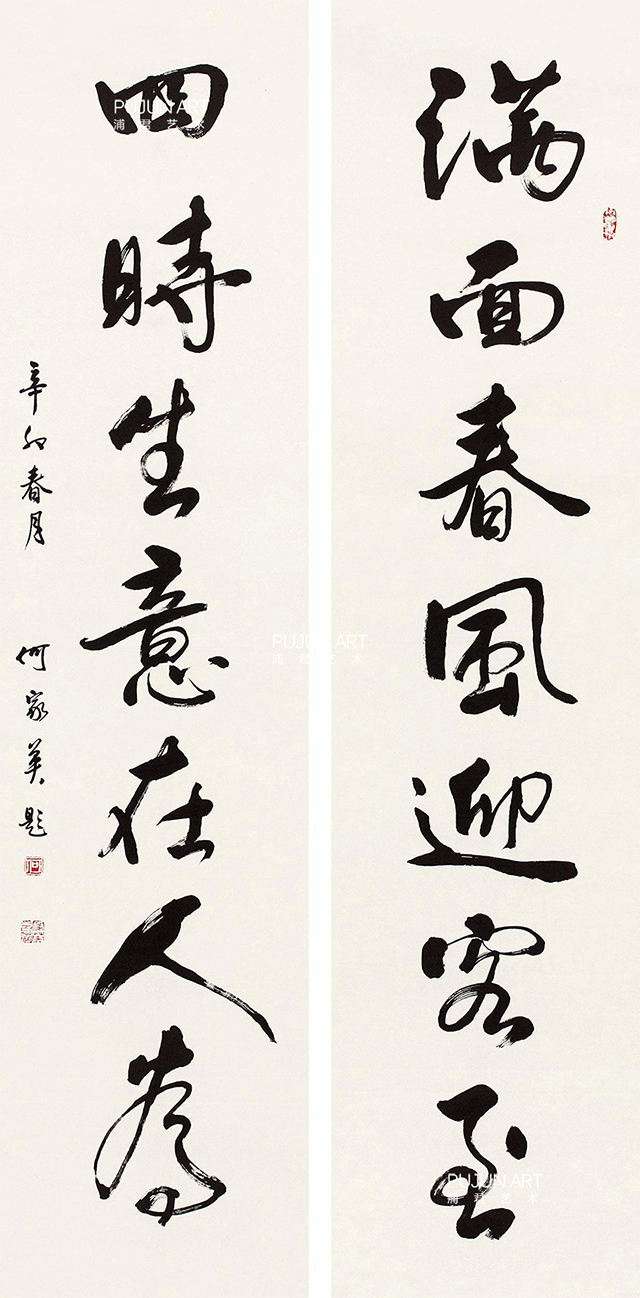 满面春風迎客至
四時生意在人為
辛卯春月 何家英題
PUJUN ART
浦君艺术
PUJUN ART
浦君艺术
PUJUN ART
浦君艺术